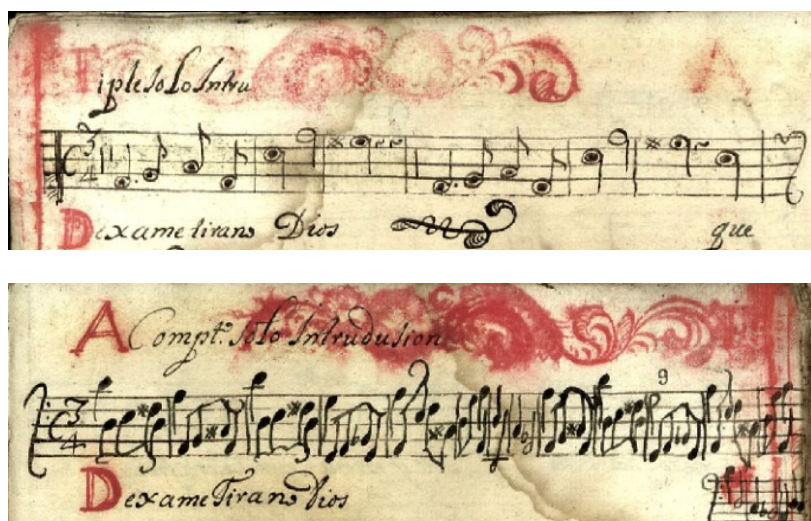 Tiple solo Intru
3
4
Dexame tirano Dios que
A Comptº. solo Intrudusion
9
3
4
Dexame Tirano Dios